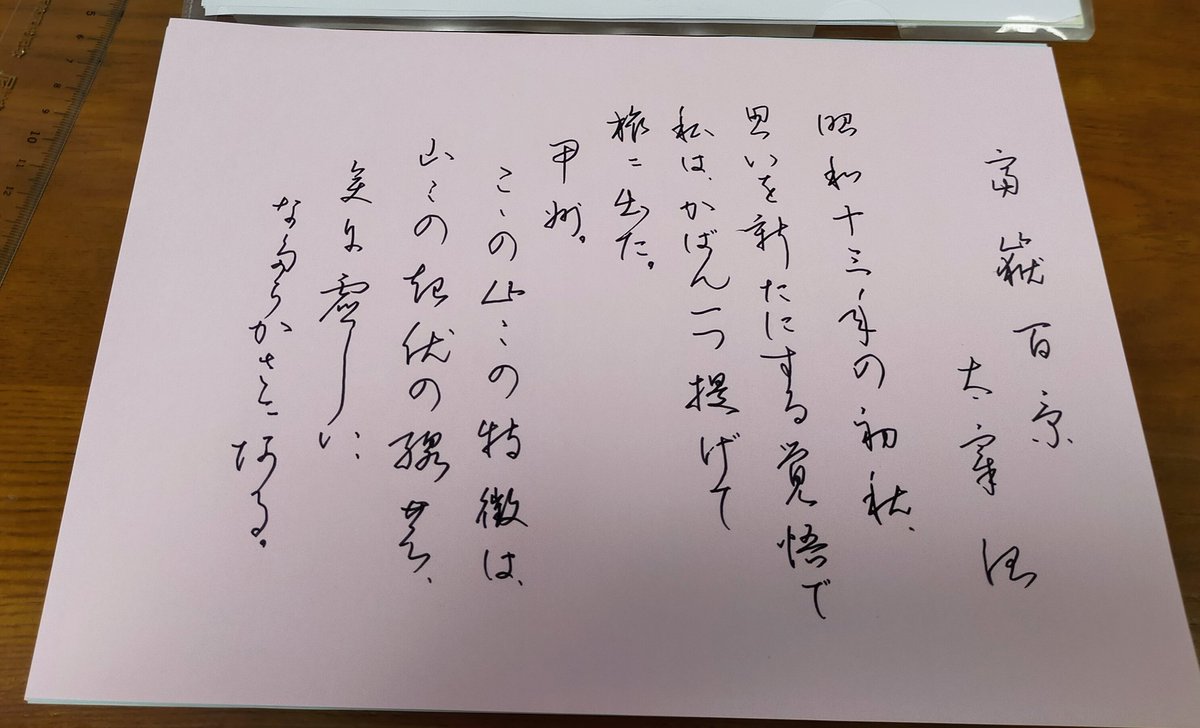 富嶽百景
太宰治
昭和十三年の初秋、
思いを新たにする覚悟で
私は、かばん一つ提げて
旅に出た。
甲州。
ここの山々の特徴は、
山々の起伏の
変に虚しい、
なだらかさにある。
7
8
9
10
11
12